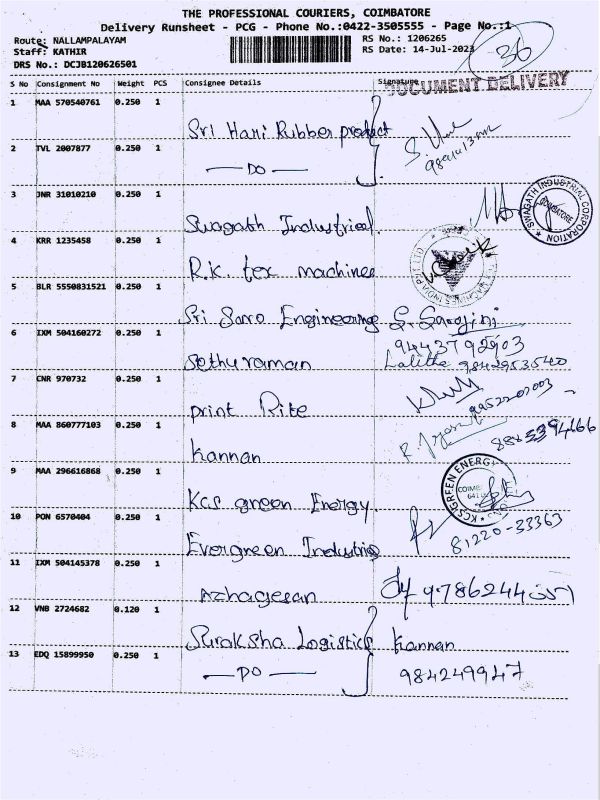 THE PROFESSIONAL COURIERS, COIMBATORE
Delivery Runsheet - PCG - Phone No.:0422-3505555 - Page No.:1
Route: NALLAMPALAYAM RS No.: 1206265
Staff: KATHIR RS Date: 14-Jul-2023
DRS No.: DCJB120626501
36
S No Consignment No Weight PCS Consignee Details Signature
DOCUMENT DELIVERY
1 MAA 570540761 0.250 1 Sri Hari Rubber product
2 TVL 2007877 0.250 1 — DO —
3 JNR 31010210 0.250 1 Swagath Industrial.
SWAGATH INDUSTRIAL CORPORATION COIMBATORE
4 KRR 1235458 0.250 1 R.K. tex machines
MACHINES INDIA PVT LTD
5 BLR 5550831521 0.250 1 Sri Saro Engineering S. Sarojini
9443792903
6 IXM 504160272 0.250 1 Sethuraman Lalitha 9842953540
7 CNR 970732 0.250 1 print Rite
8 MAA 860777103 0.250 1 Kannan
9 MAA 296616868 0.250 1 Kcs green Energy.
KCS GREEN ENERGY
10 PON 6570404 0.250 1 Evergreen Industries 81220-33363
11 IXM 504145378 0.250 1 Azhagesan
12 VNB 2724682 0.120 1 Suraksha Logistics Kannan
13 EDQ 15899950 0.250 1 — DO — 984249947